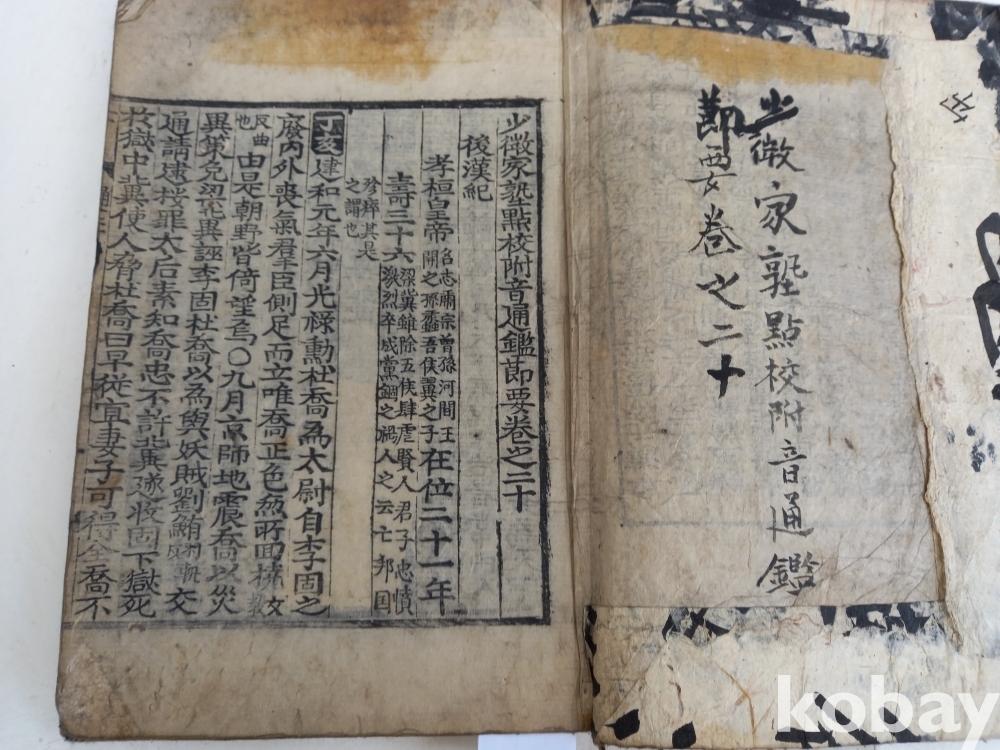 少微家塾點校附音通鑑
節要卷之二十
少微家塾點校附音通鑑節要卷之二十
後漢紀
孝桓皇帝 名志肅宗曾孫河間王
開之孫蠡吾侯翼之子 在位二十一年
壽三十六 梁冀雖除五侯肆虐賢人君子忠憤
激烈卒成黨錮之禍人之云亡邦國
殄瘁其是
之謂也
丁亥 建和元年六月光祿勳杜喬爲太尉自李固之
廢內外喪氣羣臣側足而立唯喬正色無所回橈 女敎
反曲
也 由是朝野皆倚望焉〇九月京師地震喬以災
異策免梁冀誣李固杜喬以爲與妖賊劉鮪 交
通請逮按罪太后素知喬忠不許冀遂收固下獄死
於獄中冀使人脅杜喬曰早從宜妻子可得全喬不
kobay